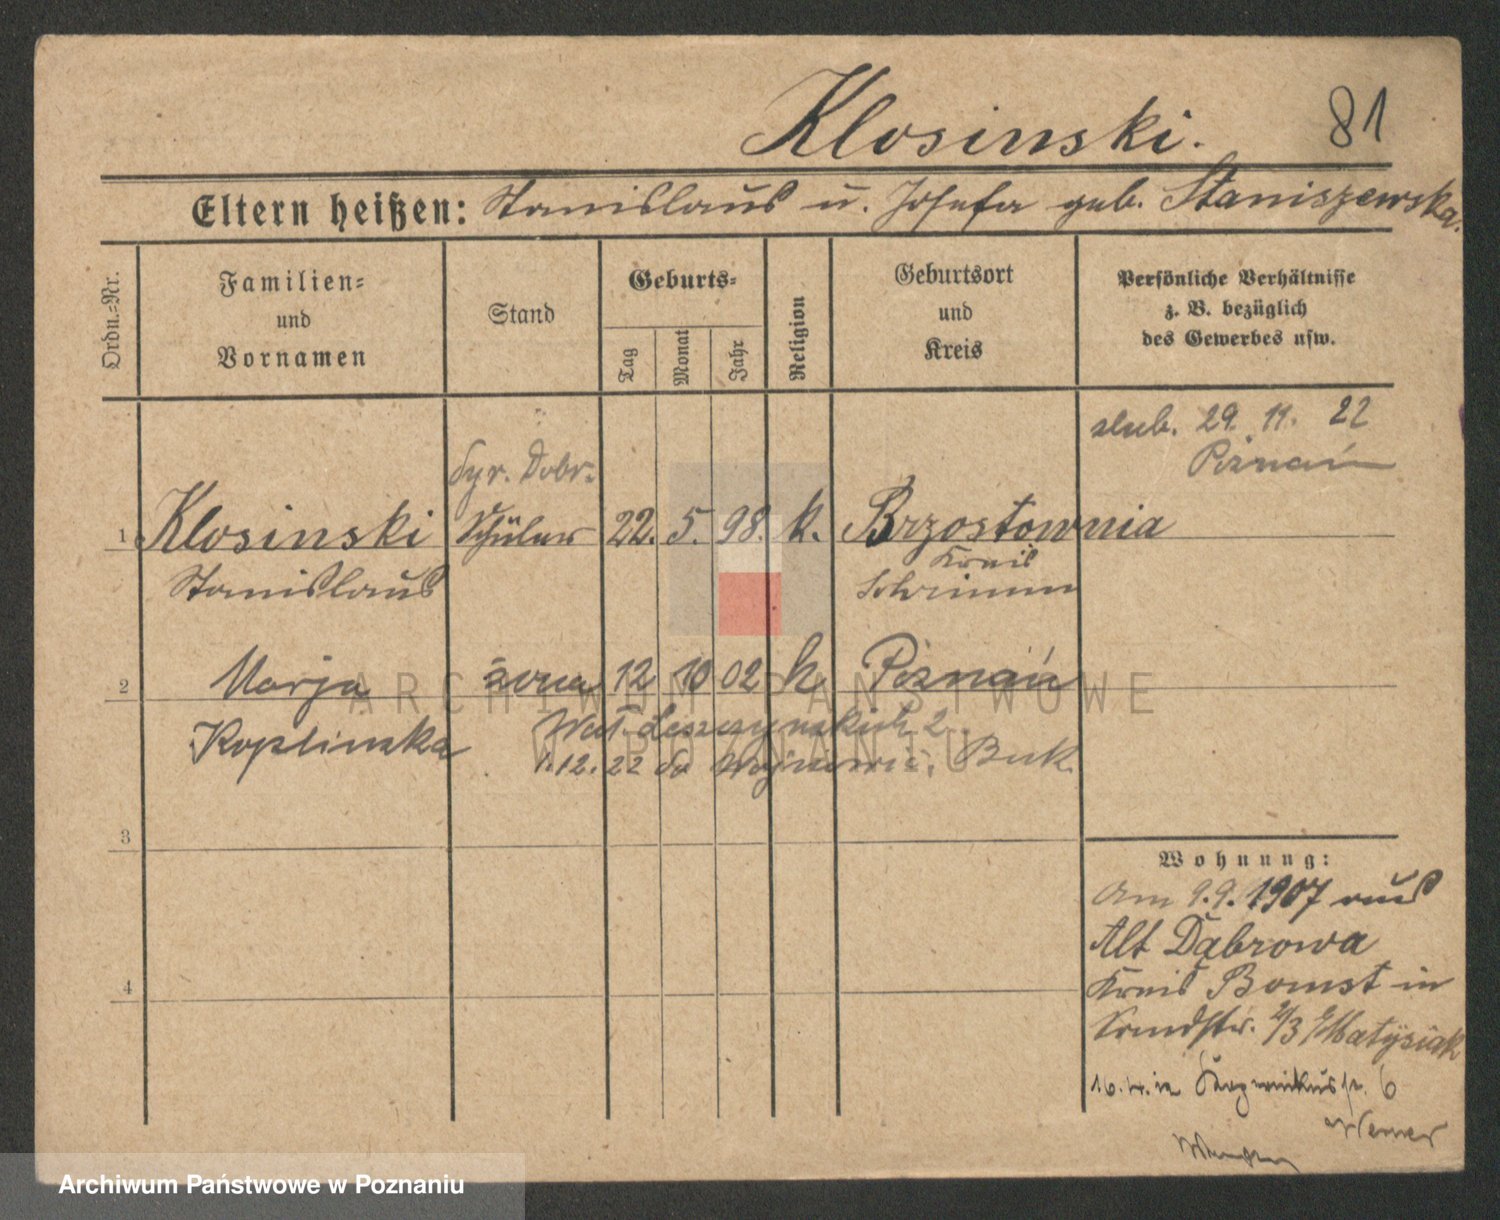 Klosinski. 81
Eltern heißen: Stanislaus u. Josefa geb. Staniszewska.
Ordn.-Nr.
Familien- und Vornamen
Stand
Geburts-
Tag
Monat
Jahr
Religion
Geburtsort und Kreis
Persönliche Verhältnisse z. B. bezüglich des Gewerbes usw.
ślub. 29. 11. 22
Poznań
Dyr. Dobr.
1 Klosinski Schüler 22. 5. 98. k. Brzostownia
Kreis
Stanislaus Schrimm
2 Marja żona 12 10 02 k Poznań
Koplinska Wał. Leszczyńskich 2
1.12.22 do Buk.
3
4
Wohnung:
Am 9.9.1907 aus
Alt Dąbrowa
Kreis Bomst in
2/3 b/Matysiak
16.4. in 6
Werner
ARCHIWUM PAŃSTWOWE
W POZNANIU
Archiwum Państwowe w Poznaniu